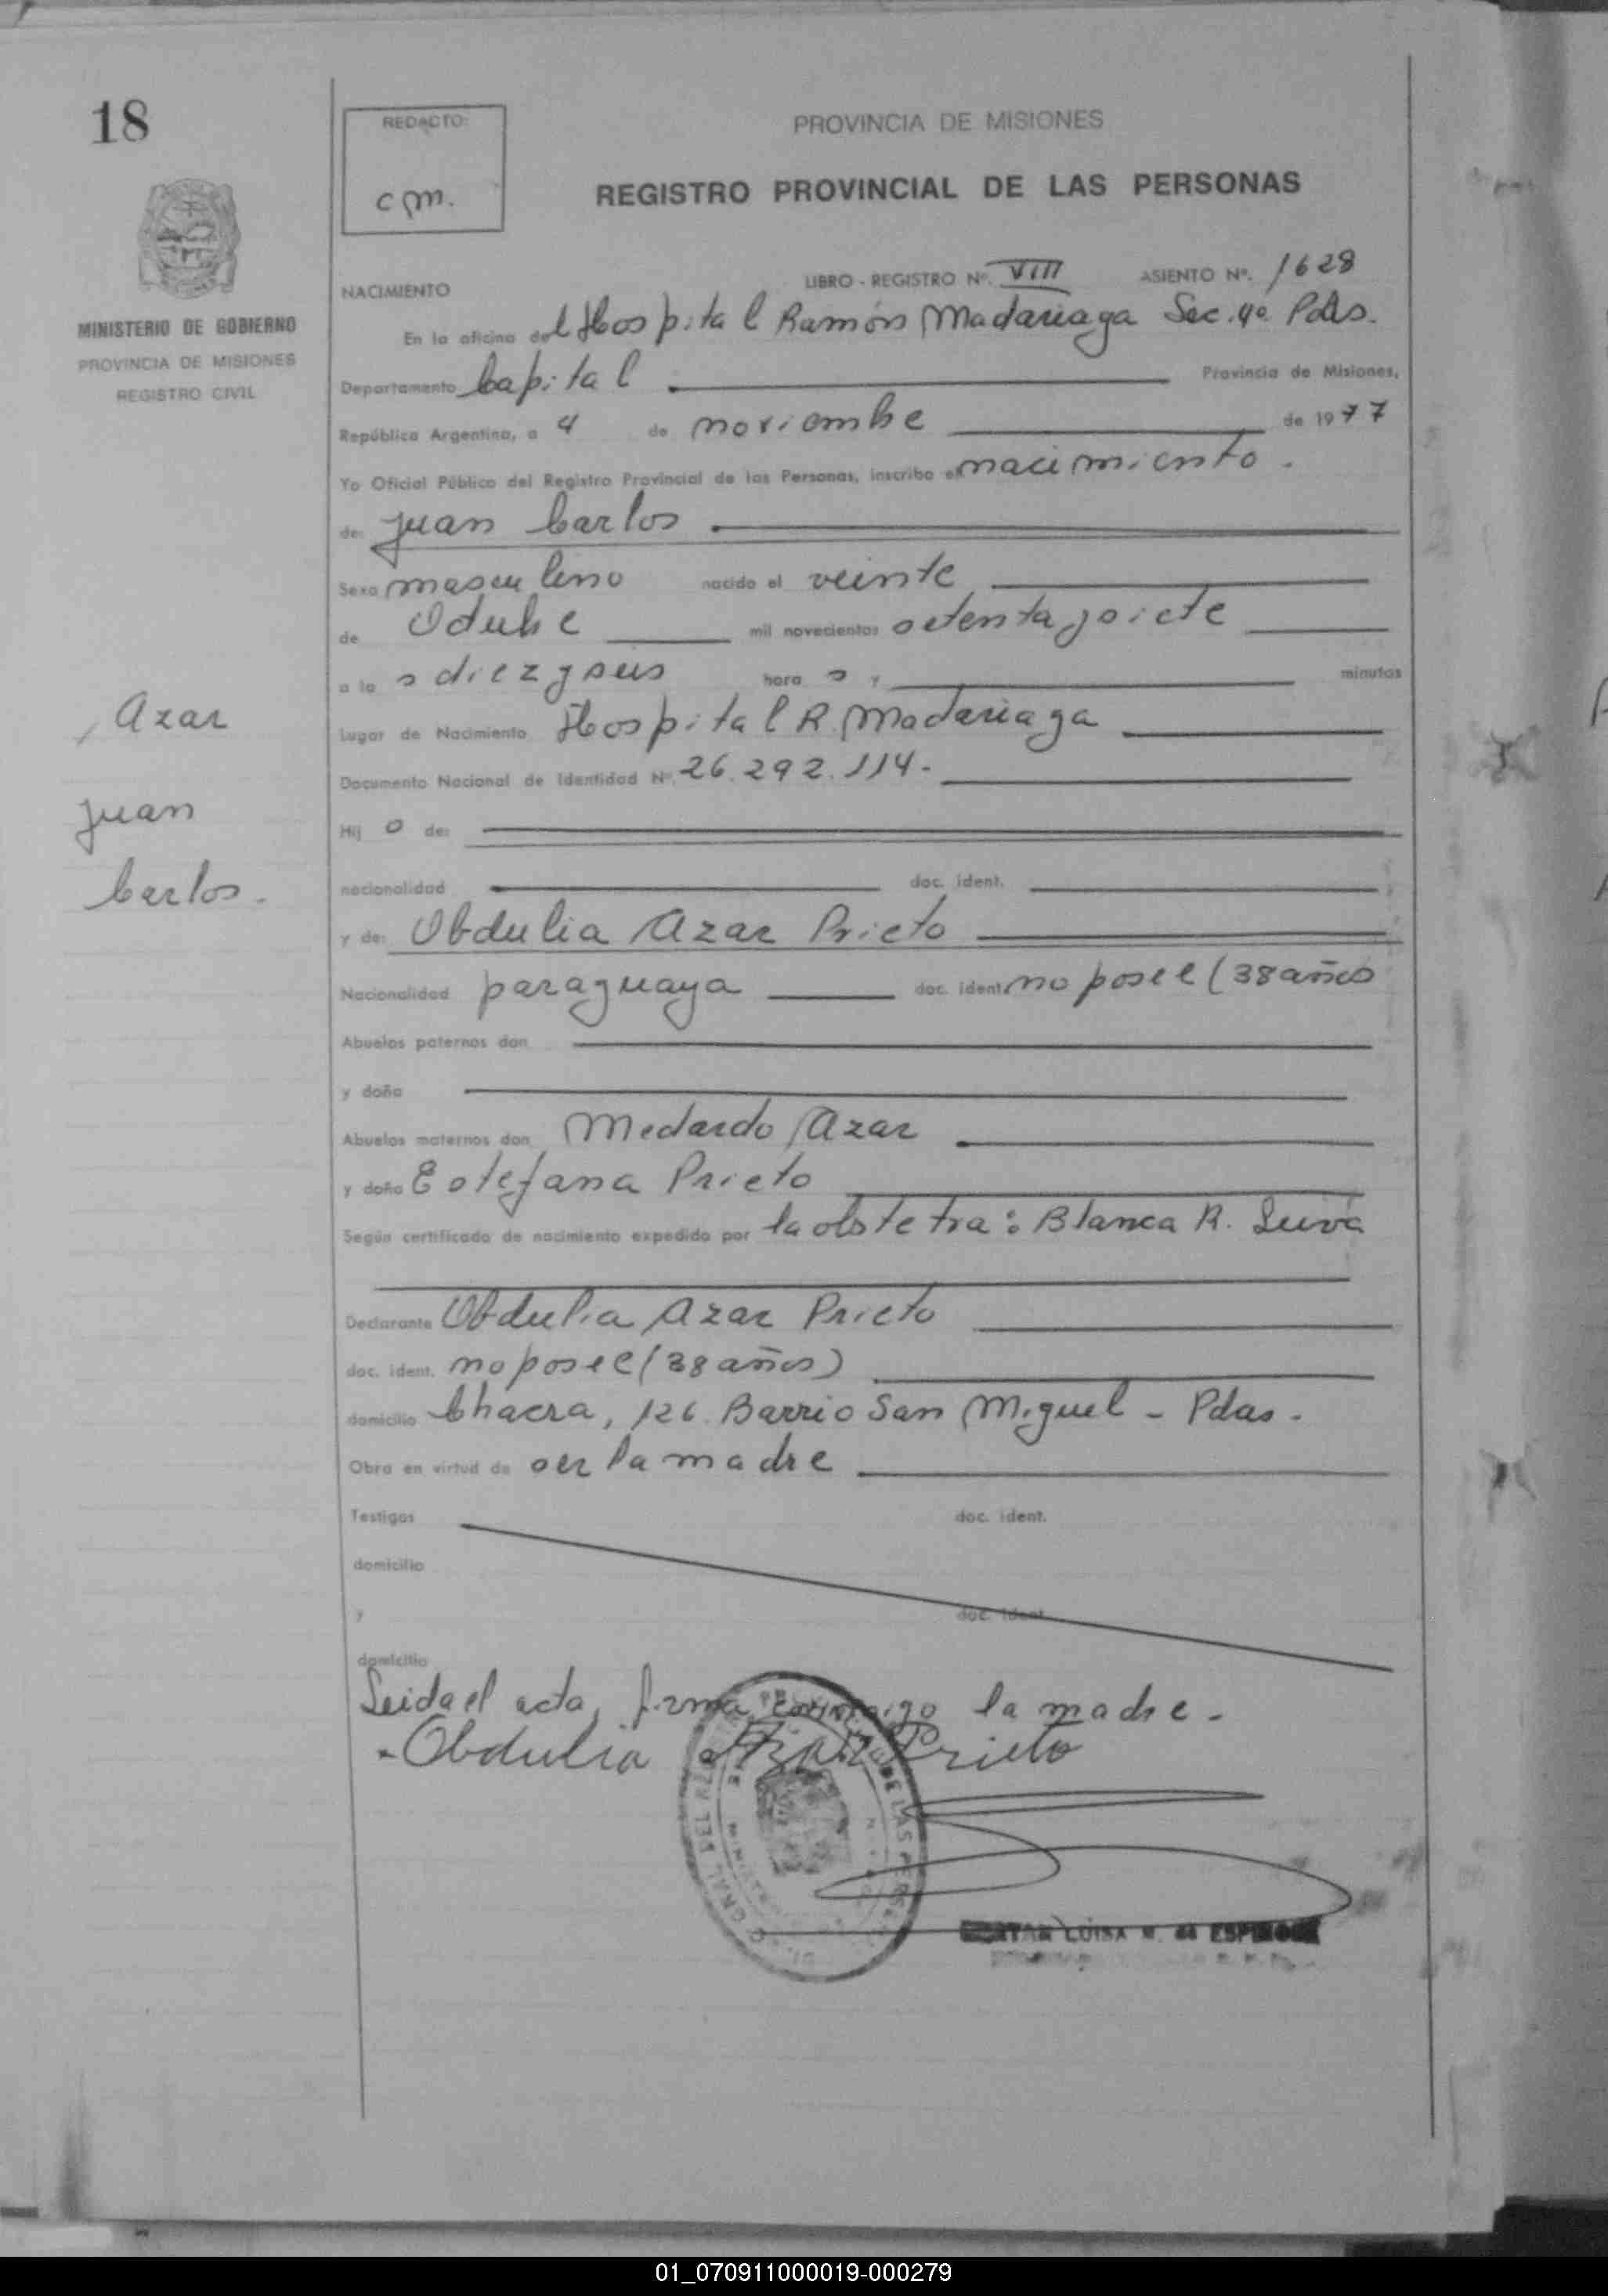 18
REDACTO:
cm.
PROVINCIA DE MISIONES
REGISTRO PROVINCIAL DE LAS PERSONAS
MINISTERIO DE GOBIERNO
PROVINCIA DE MISIONES
REGISTRO CIVIL
NACIMIENTO LIBRO - REGISTRO Nº. VIII ASIENTO Nº. 1628
En la oficina del Hospital Ramón Madariaga Sec. 4º Pdas.
Departamento Capital Provincia de Misiones,
República Argentina, a 4 de noviembre de 1977
Yo Oficial Público del Registro Provincial de las Personas, inscribo el nacimiento.
de: Juan Carlos
Sexo masculino nacido el veinte
de Octubre mil novecientos setenta y siete
a las diez y seis horas y minutos
Lugar de Nacimiento Hospital R. Madariaga
Documento Nacional de Identidad Nº. 26.292.114.-
Hijo de:
nacionalidad doc. ident.
y de: Obdulia Azar Prieto
Nacionalidad paraguaya doc. ident. no posee (38 años
Abuelos paternos don
y doña
Abuelos maternos don Medardo Azar
y doña Estefana Prieto
Según certificado de nacimiento expedido por la obstetra: Blanca R. Leiva
Declarante Obdulia Azar Prieto
doc. ident. no posee (38 años)
domicilio Chacra, 126. Barrio San Miguel - Pdas.
Obra en virtud de ser la madre
Testigos doc. ident.
domicilio
y doc. ident.
domicilio
Leida el acta, firma conmigo la madre.
Obdulia Azar Prieto
LUISA M. de ESPINOSA
Azar
Juan
Carlos.
01_070911000019-000279